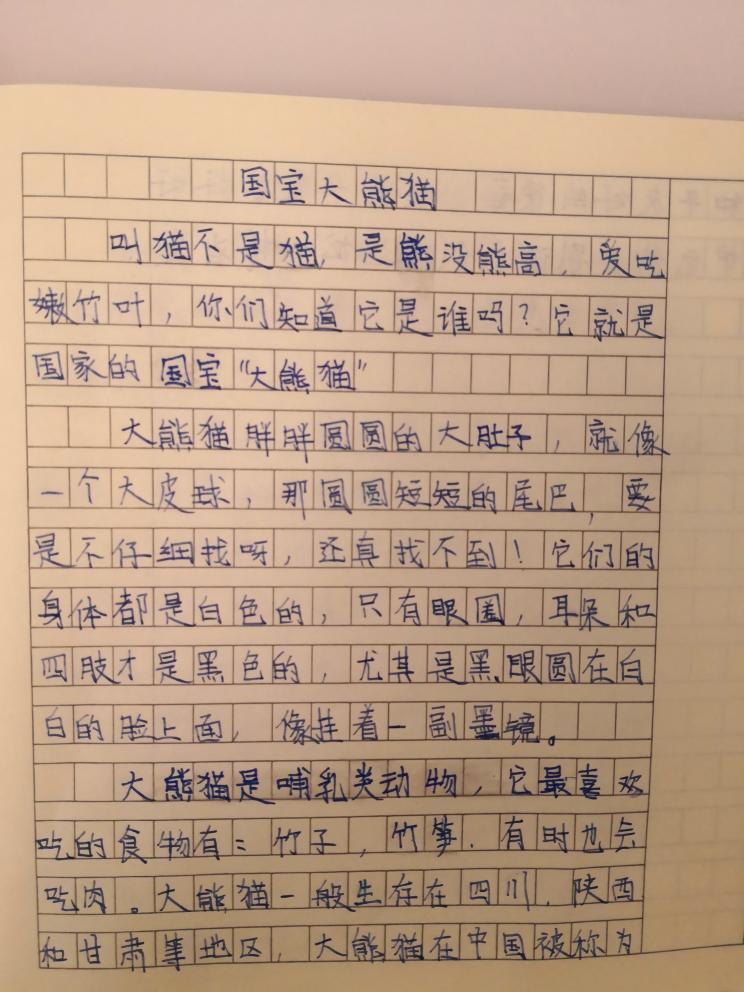 国宝大熊猫
叫猫不是猫,是熊没熊高,爱吃
嫩竹叶,你们知道它是谁吗?它就是
国家的国宝“大熊猫”
大熊猫胖胖圆圆的大肚子,就像
一个大皮球,那圆圆短短的尾巴,要
是不仔细找呀,还真找不到!它们的
身体都是白色的,只有眼圈,耳朵和
四肢才是黑色的,尤其是黑眼圆在白
白的脸上面,像挂着一副墨镜。
大熊猫是哺乳类动物,它最喜欢
吃的食物有:竹子,竹笋.有时也会
吃肉。大熊猫一般生存在四川.陕西
和甘肃等地区,大熊猫在中国被称为